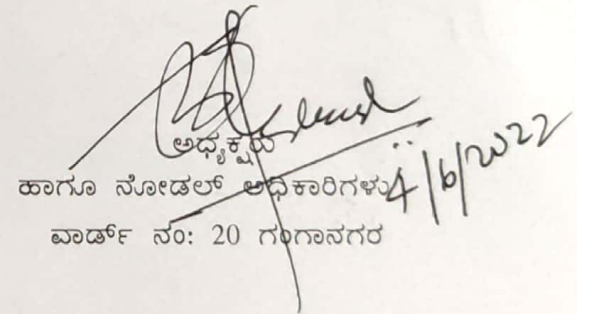 ಅಧ್ಯಕ್ಷರು
ಹಾಗೂ ನೋಡಲ್ ಅಧಿಕಾರಿಗಳು 4/6/2022
ವಾರ್ಡ್ ನಂ: 20 ಗಂಗಾನಗರ